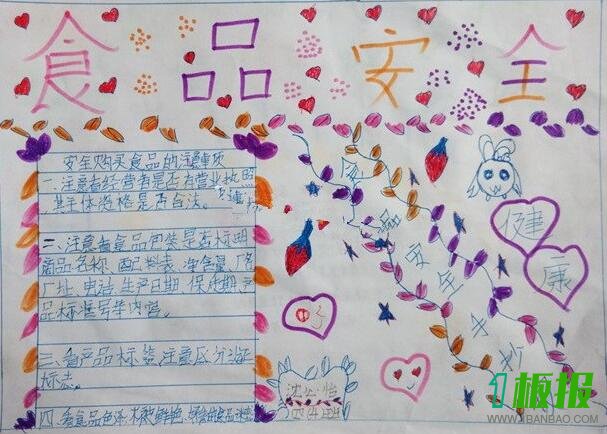 食品安全
安全购买食品的注意事项
一、注意看经营者是否有营业执照
其主体资格是否合法。
二、注意看食品包装是否标明
商品名称、配料表、净含量、厂名
厂址、电话、生产日期、保质期、产
品标准号等内容。
三、看产品标签,注意区分认证
标志。
四、看食品色泽,不被鲜艳
食品安全手抄
健
康
沈心怡
四(4)班
1板报
WWW.1BANBAO.COM